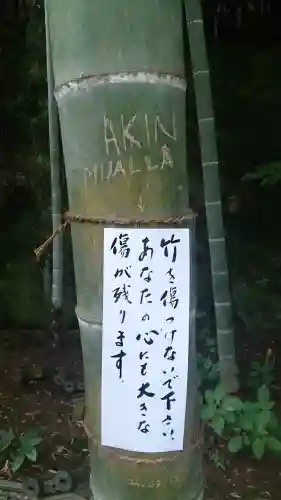 AKIN
MIJALLA
竹を傷つけないで下さい
あなたの心にも大きな
傷が残ります.